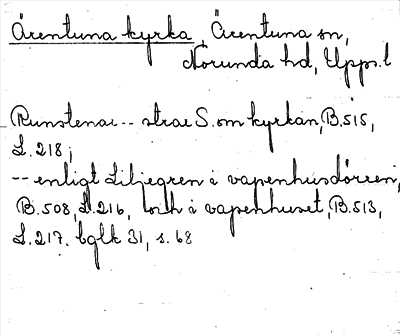 Ärentuna kyrka, Ärentuna sn,
Norunda hd, Upps. l
Runstenar -- strax S. om kyrkan, B. 515,
L. 218;
-- enligt Liljegren i vapenhusdörren,
B. 508, L. 216, och i vapenhuset, B. 513,
L. 217. bglk 31, s. 68